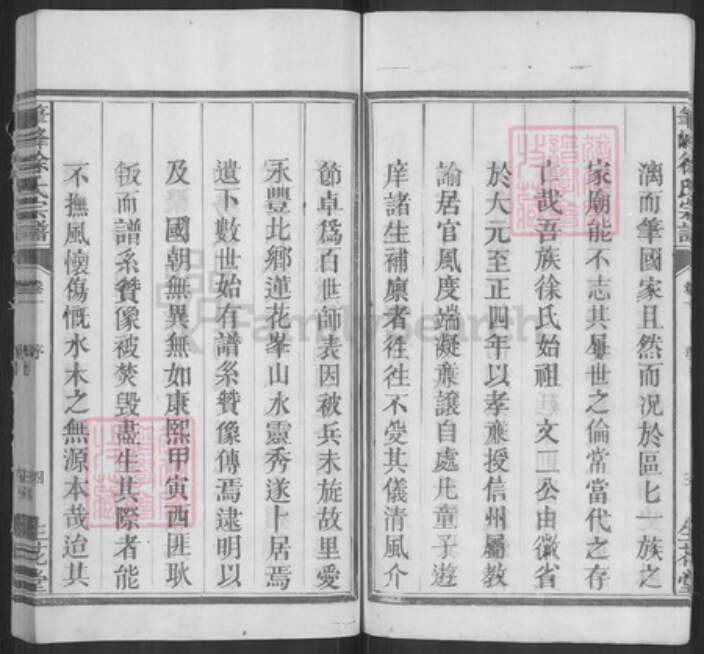 漓而筆國家且然而况於區匕一族之
家廟能不志其歷世之倫常當代之存
亡哉吾族徐氏始祖 文二公由徽省
於大元至正四年以孝亷授信州屬教
諭居官風度端凝亷讓自處凡童子遊
庠諸生補廪者徃徃不受其儀清風介
節卓爲百世師表因被兵未旋故里愛
永豐北鄉蓮花峯山水靈秀遂卜居焉
遺下數世始有譜系贊像傳焉逮明以
及 國朝無異無如康熙甲寅西匪耿
叛而譜系贊像被焚毁盡生其際者能
不撫風懷傷慨水木之無源本哉迨其
筆峰徐氏宗譜
卷一
序
四
生花堂
FamilySearch